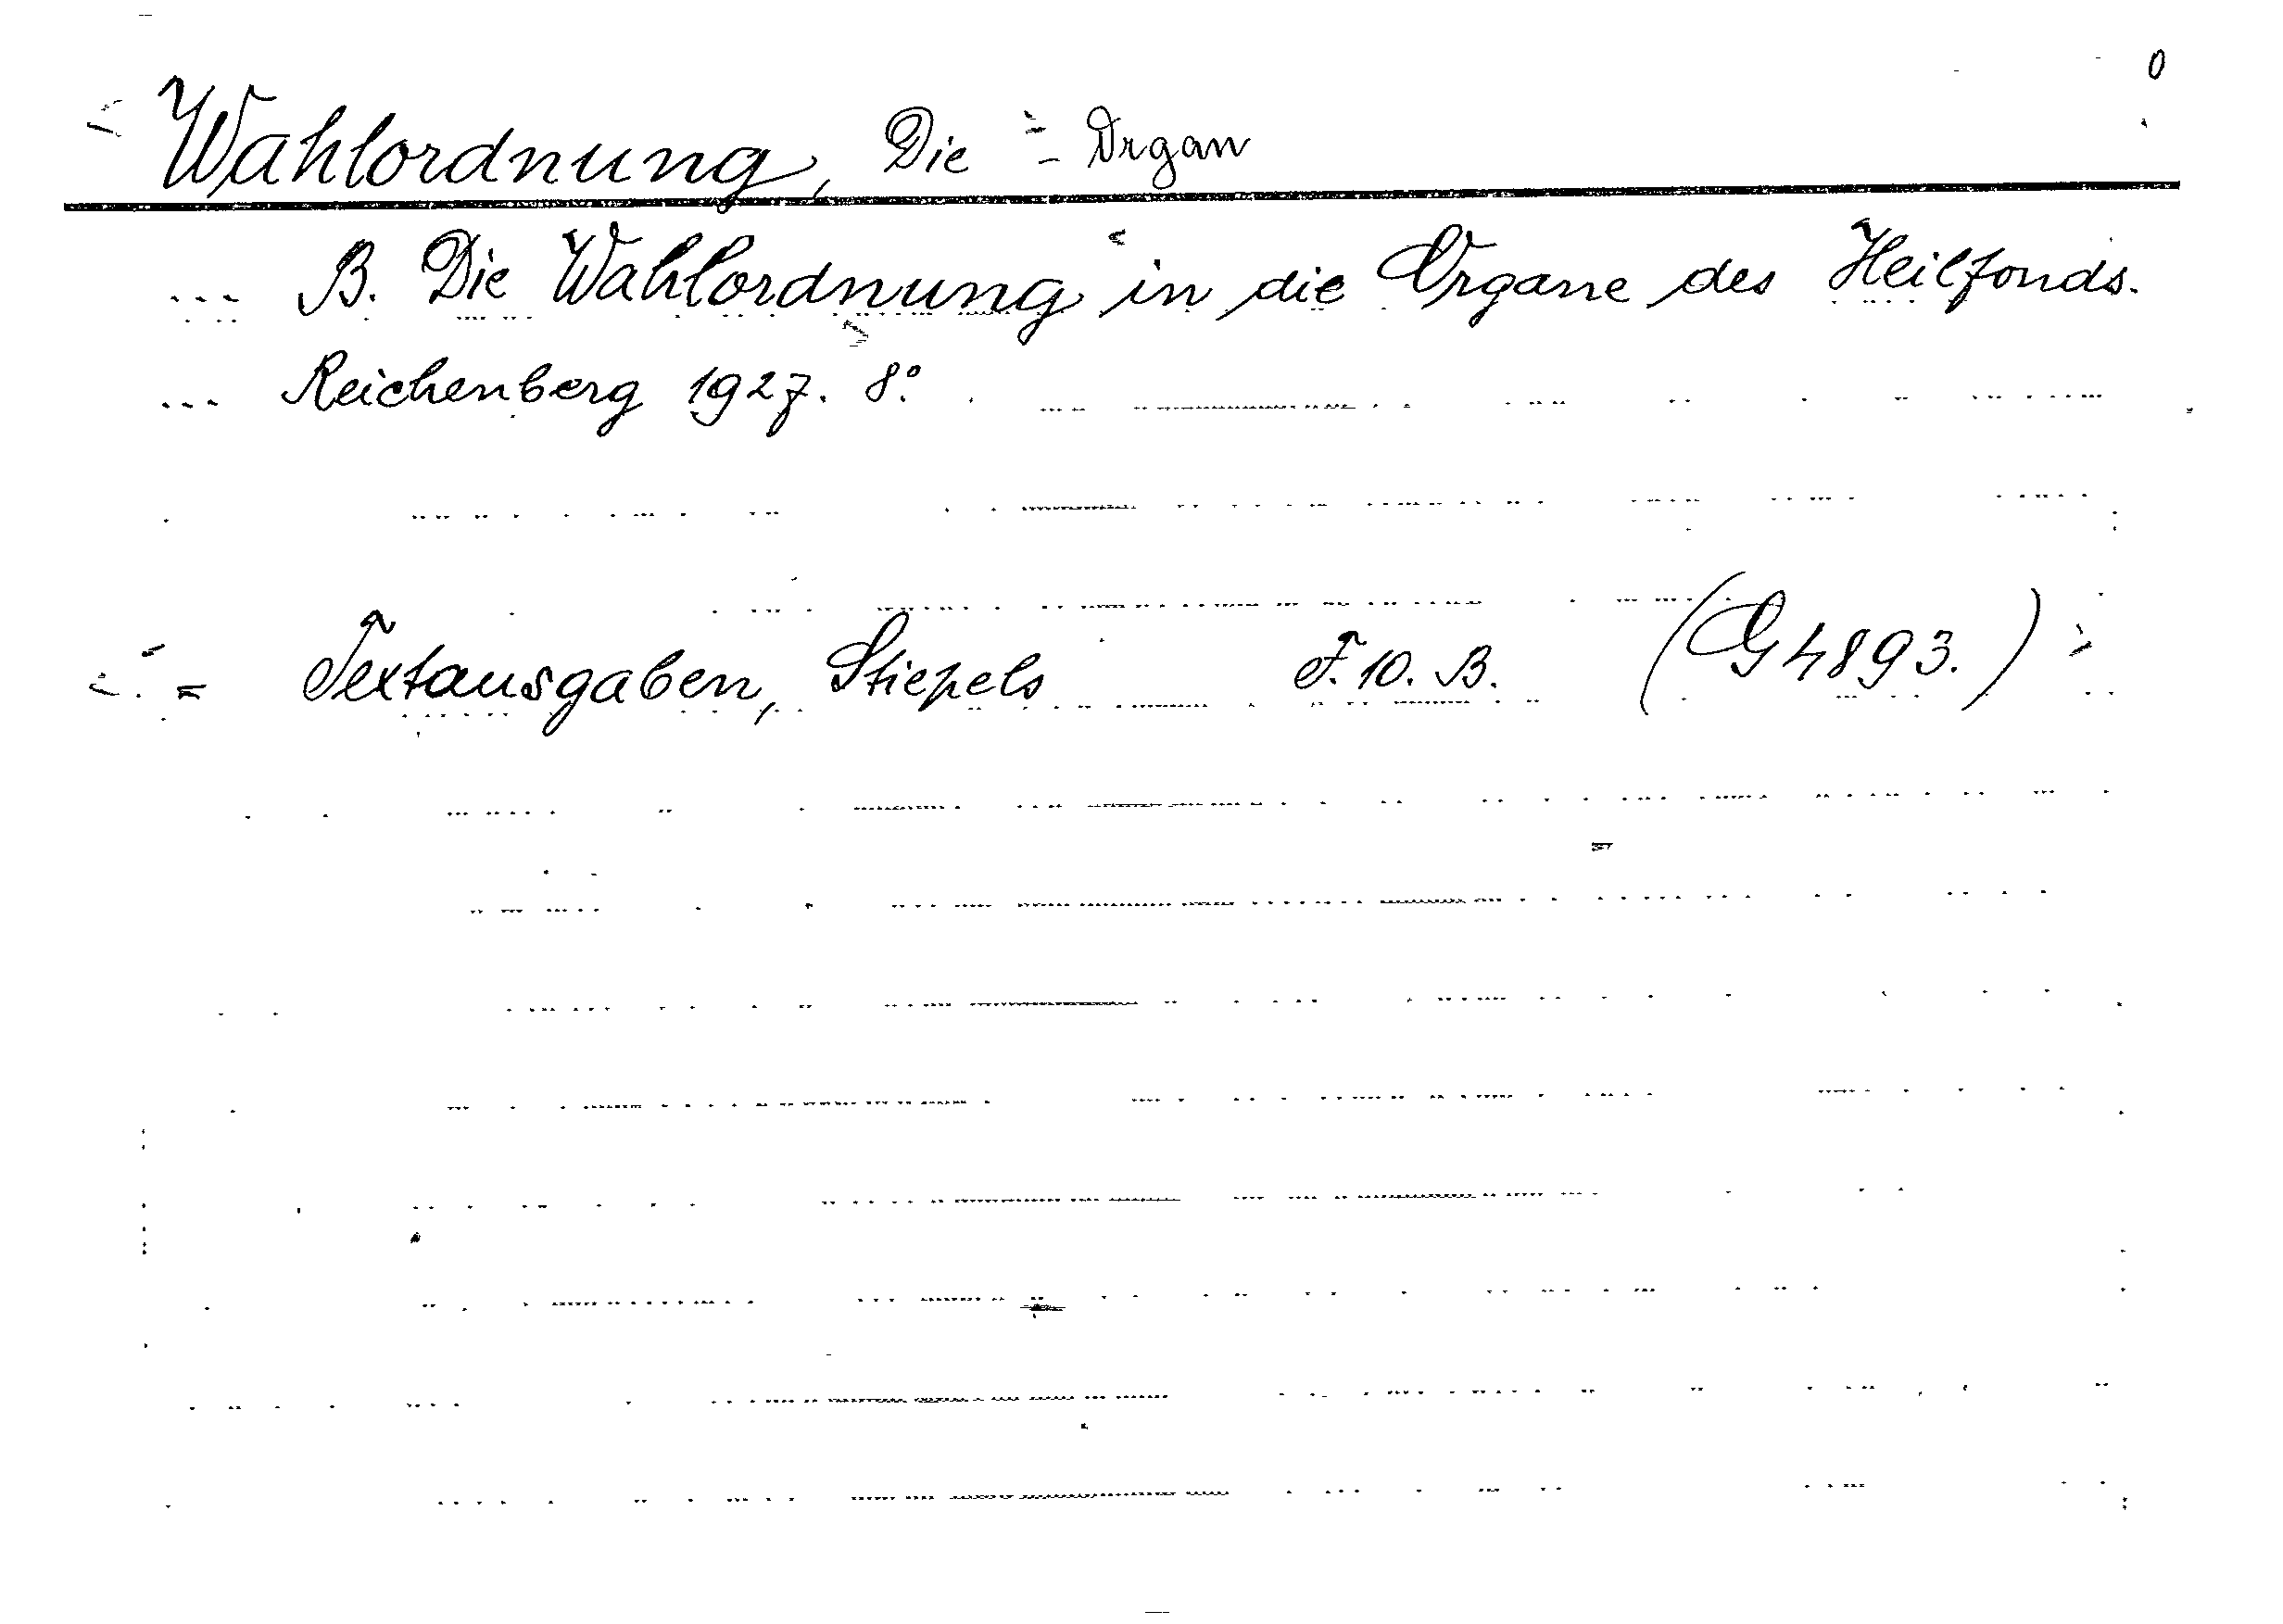 0
Wahlordnung, Die - Organ
B. Die Wahlordnung in die Organe des Heilfonds.
Reichenberg 1927. 8°.
= Textausgaben, Stiepels F. 10. B. (G 4893.)